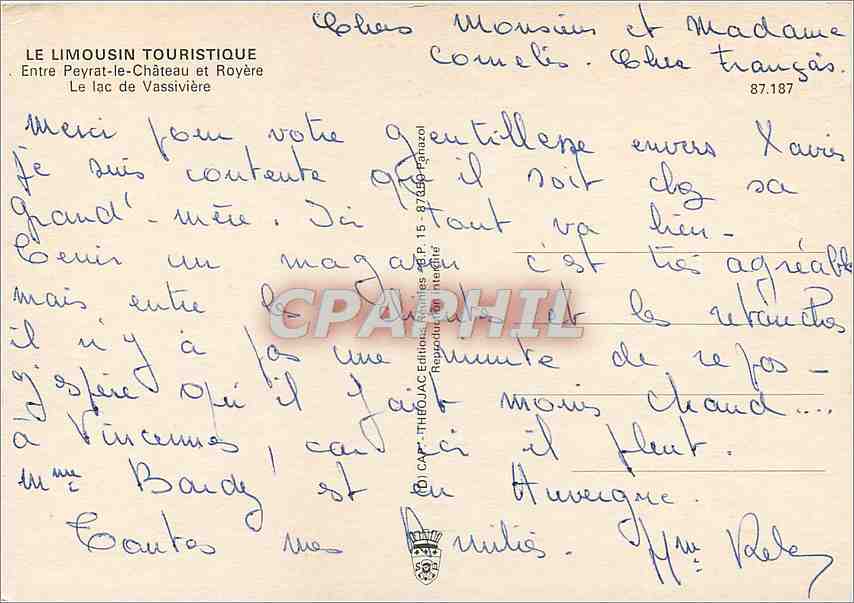 Chers Monsieur et Madame
LE LIMOUSIN TOURISTIQUE
Cornelis. Cher Français.
Entre Peyrat-le-Château et Royère
Le lac de Vassivière
87.187
Merci pour votre gentillesse envers Xavier
je suis contente qu'il soit chez sa
grand'-mère. Ici tout va bien -
Tenir un magasin c'est très agréable
mais entre les clientes et les retouches
il n'y a pas une minute de repos -
J'espère qu'il fait moins chaud....
à Vincennes, car ici il pleut.
Mme Bardy est en Auvergne.
Toutes mes Amitiés. Mme
EDICAP - THEOJAC Editions Réunies - B.P. 15 - 87350 Panazol
Reproduction interdite
CPAPHIL